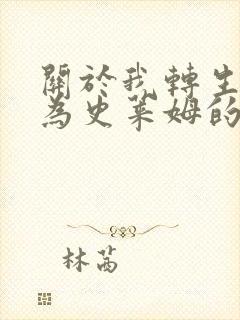 關於我轉生
為史萊姆的
林茜